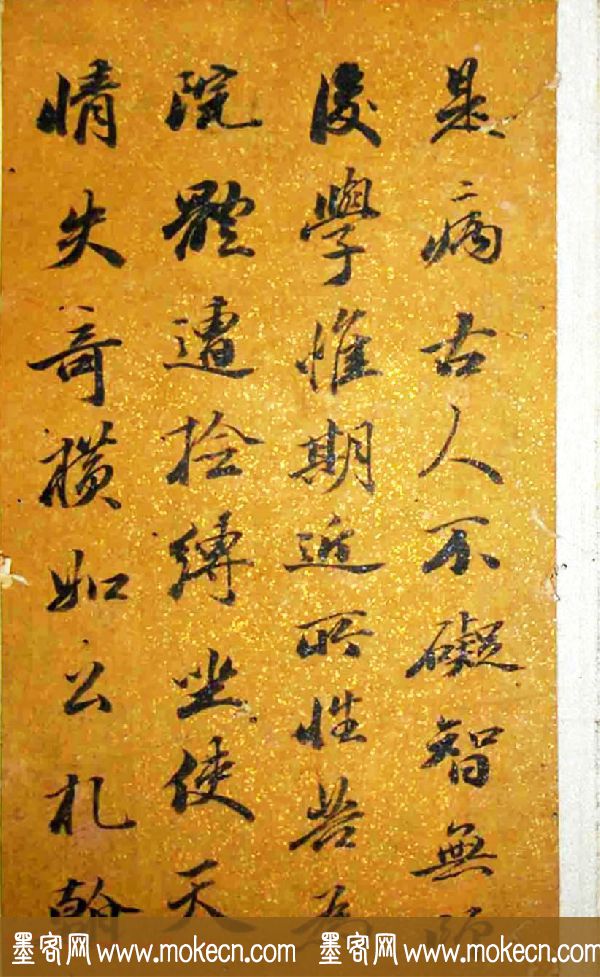 是病古人不礙智無
後學惟期近所性苦為
院體遭捡縛坐使天
情失奇橫如公札翰
墨客网 www.mokecn.com 墨客网 www.mokecn.com